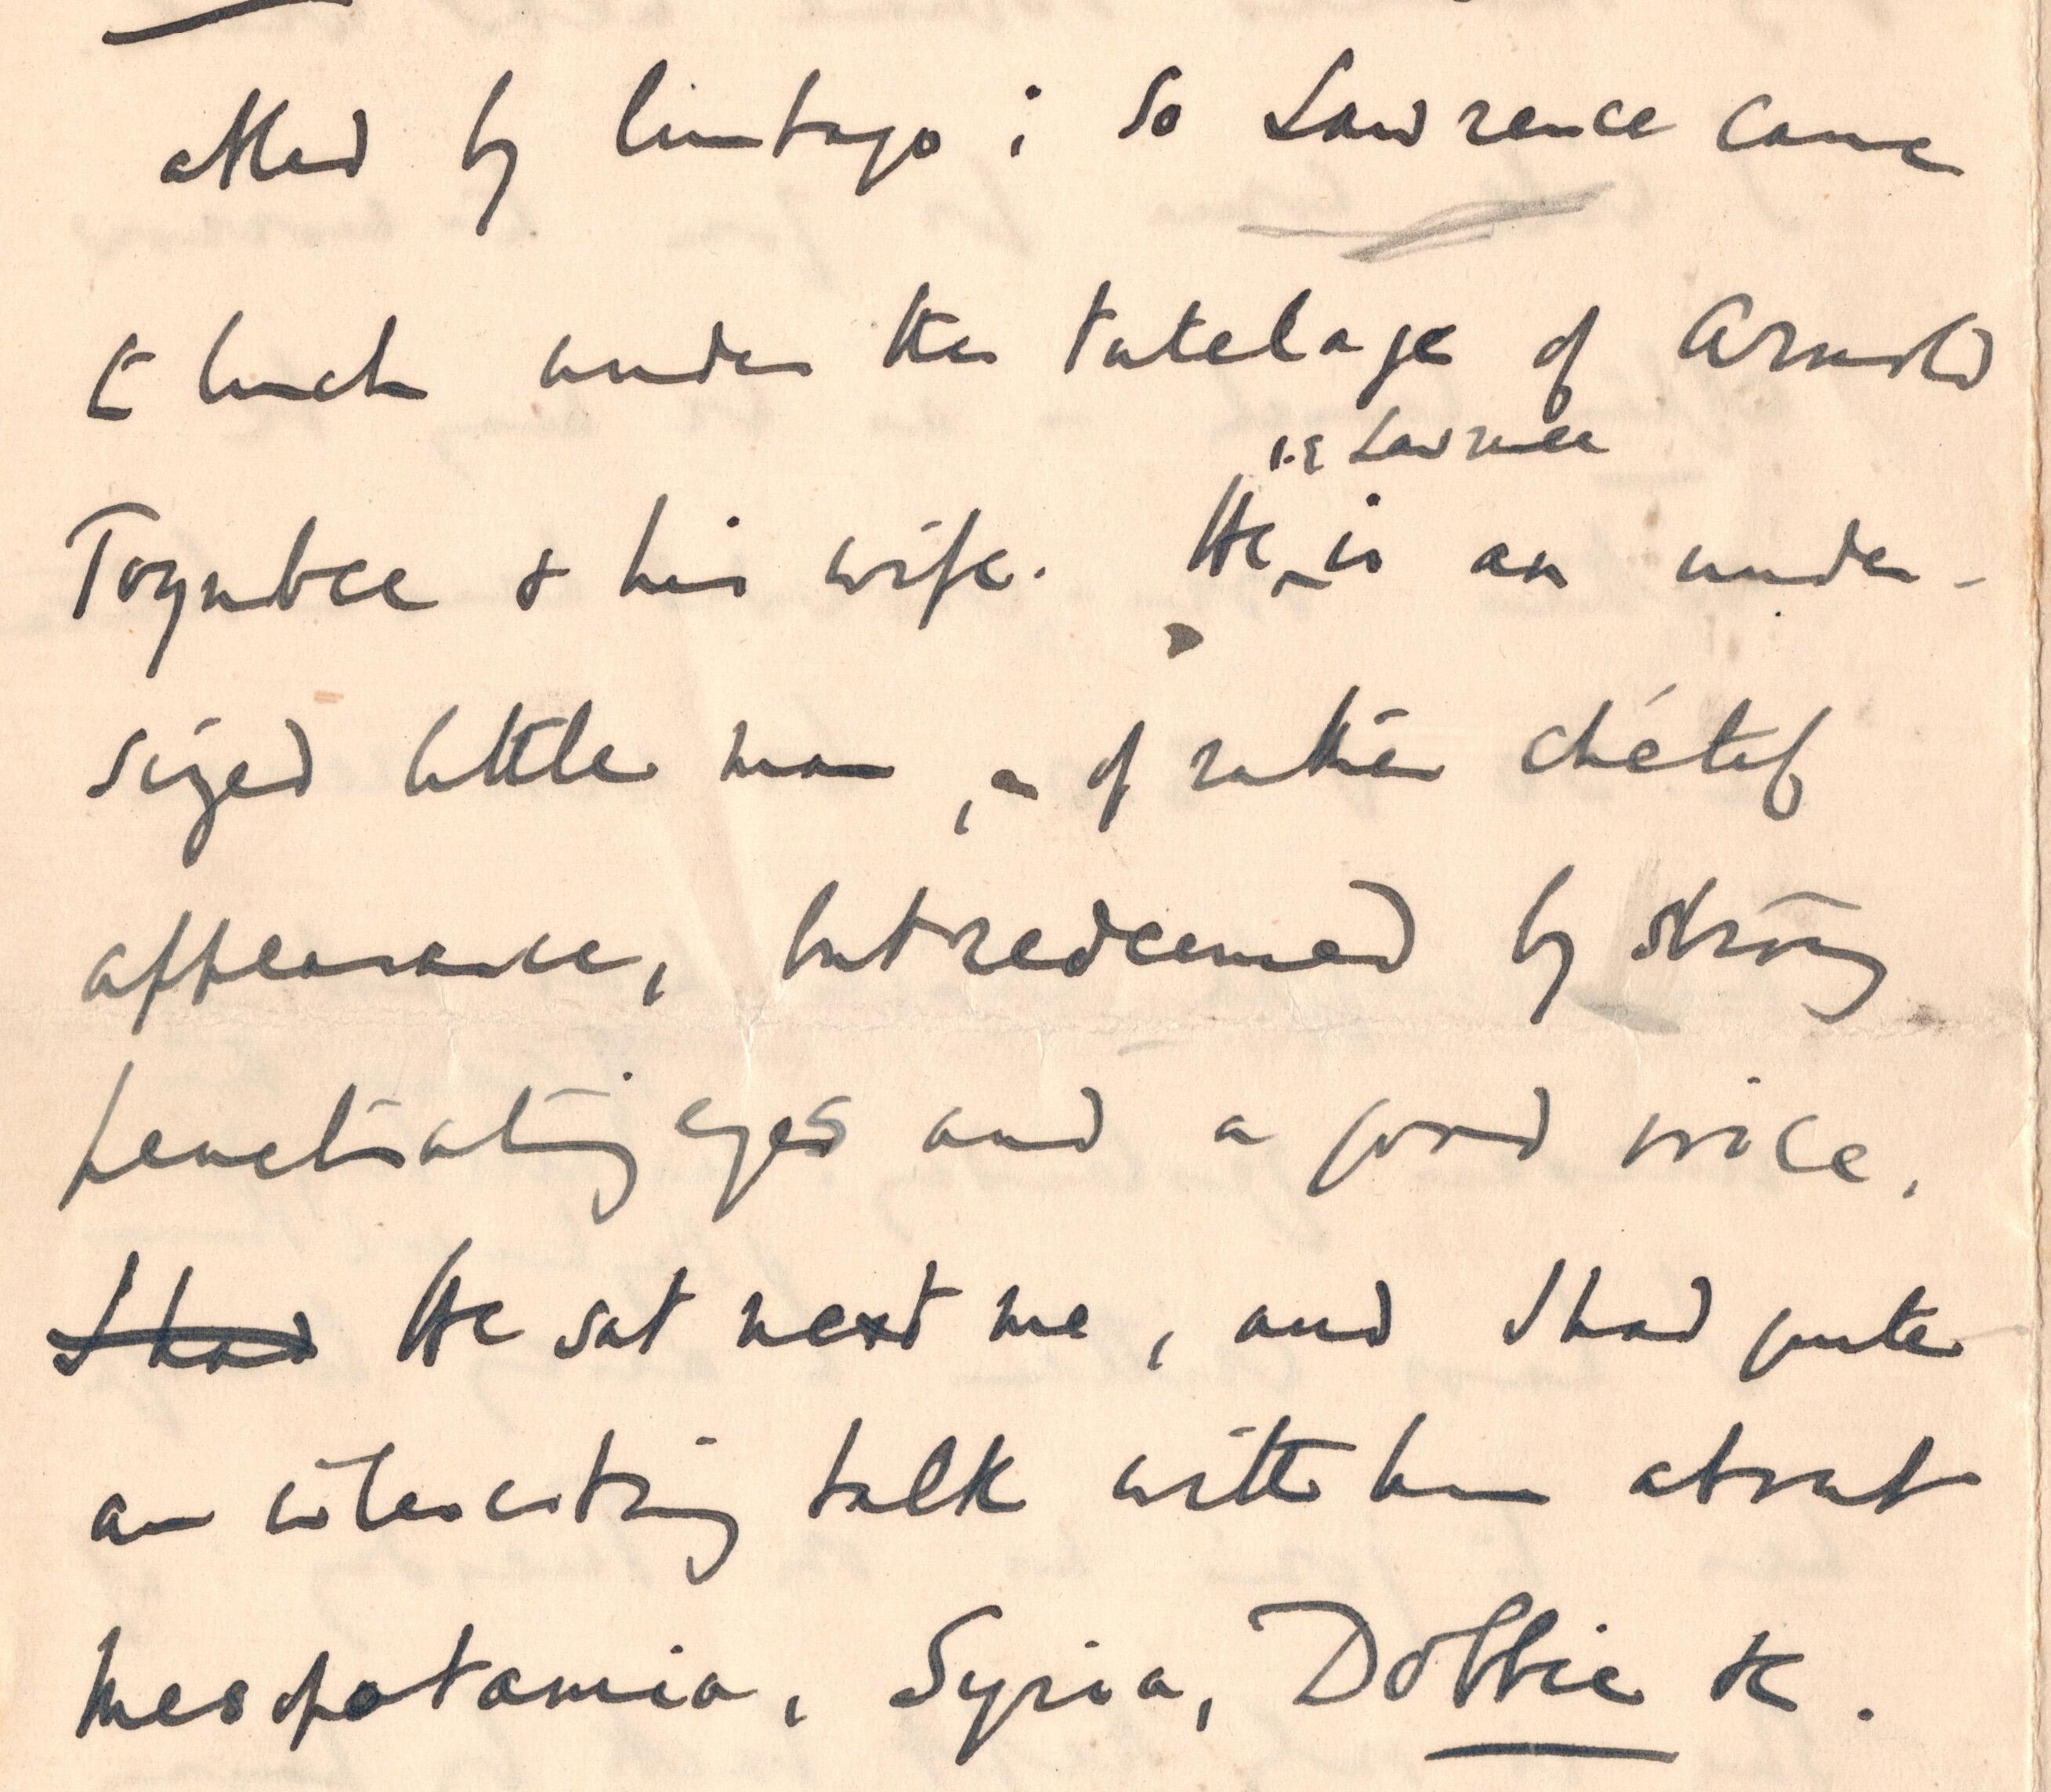 by lumbago ; so Lawrence came
to lunch under the tutelage of Arnold
i.e. Lawrence
Toynbee & his wife. He is an under-
sized little man, of rather chétif
appearance, but redeemed by strong
penetrating eyes and a good voice.
I had He sat next me, and I had quite
an interesting talk with him about
Mesopotamia, Syria, Dobbie &c.